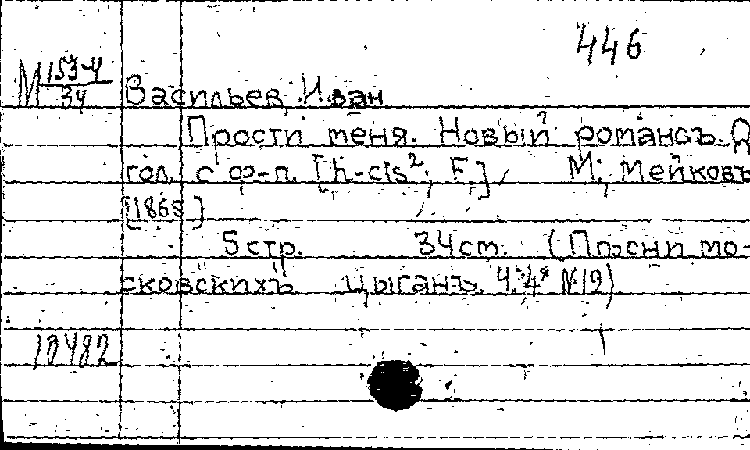 446
М 153-4/34 Васильев, Иван
Прости меня. Новый романсъ. Д
гол. с ф-п. [h-cis²; F], М; Мейковъ
[1865]
5 стр. 34 см. (Песни мо-
сковскихъ цыганъ. Ч. 4я №19)
10482